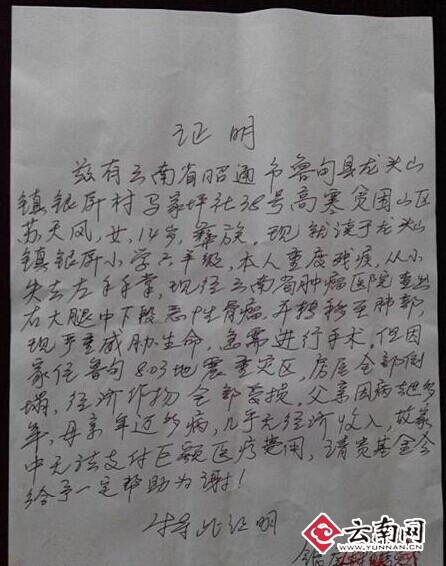 证明
兹有云南省昭通市鲁甸县龙头山
镇银屏村马家坪社38号高寒贫困山区
苏天凤,女,14岁,彝族,现就读于龙头山
镇银屏小学六年级,本人重度残疾,从小
失去左手手掌,现经云南省肿瘤医院查出
右大腿中下段恶性骨瘤,并转移至肺部,
现严重威胁生命,急需进行手术,但因
家住鲁甸8.03地震重灾区,房屋全部倒
塌,经济作物全部毁损,父亲因病去世多
年,母亲年迈多病,几乎无经济收入,故家
中无法支付巨额医疗费用,请贵基金会
给予一定帮助为谢!
特导此证明
云南网
WWW.YUNNAN.CN